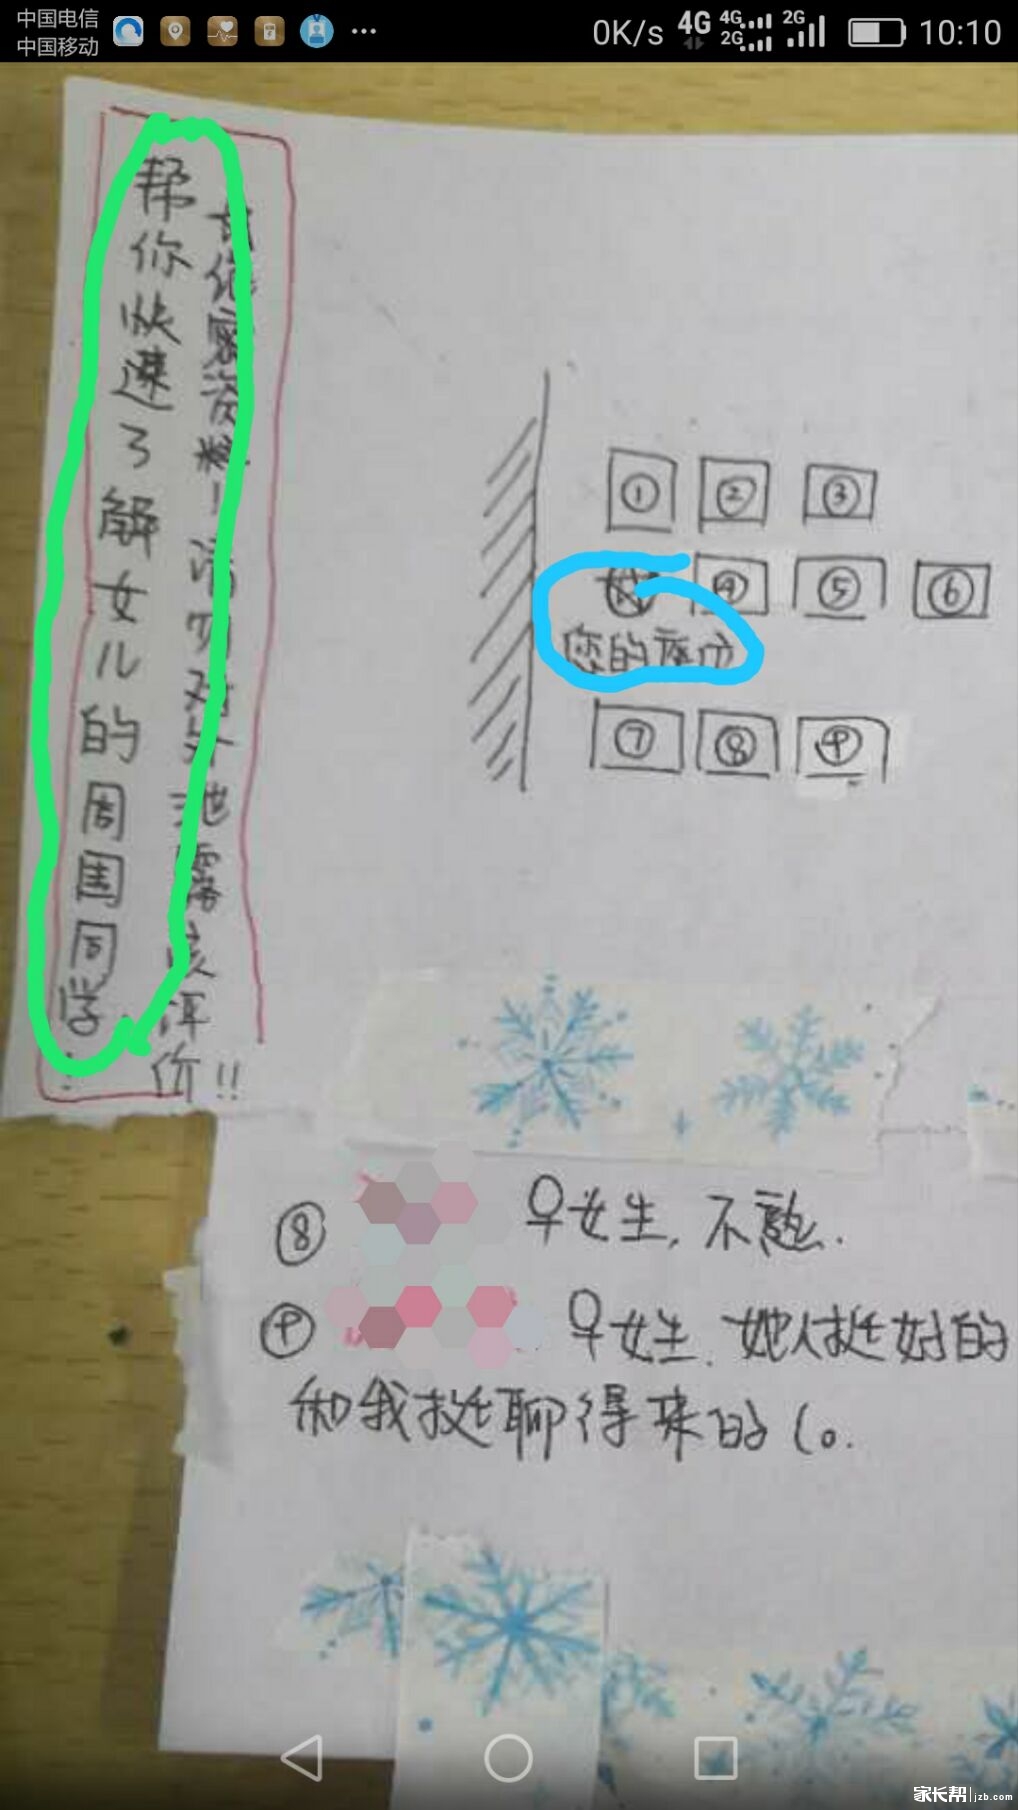 中国电信
中国移动
0K/s 4G 4G 2G 2G 10:10
帮你快速了解女儿的周围同学:
保密资料！请勿对外泄露该评价!!
① ② ③
④ ⑤ ⑥
您的座位
⑦ ⑧ ⑨
⑧ ♀女生，不熟.
⑨ ♀女生.她人挺好的
和我挺聊得来的(。.
家长帮 jzb.com